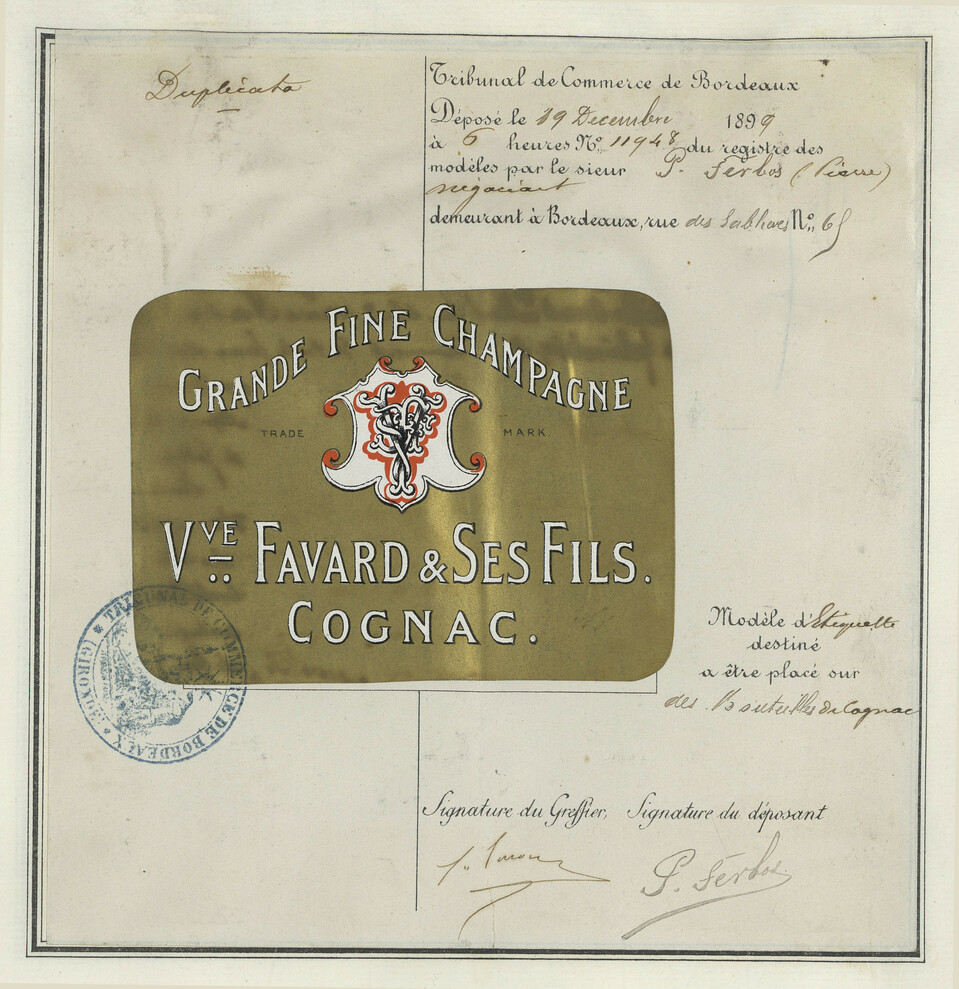 Duplicata
Tribunal de Commerce de Bordeaux
Déposé le 19 Decembre 1899
à 6 heures No. 11948 du registre des
modèles par le sieur P. Ferbos (Pierre)
négociant
demeurant à Bordeaux, rue des No. 65
GRANDE FINE CHAMPAGNE
TRADE MARK.
VVE FAVARD & SES FILS.
COGNAC.
TRIBUNAL DE COMMERCE DE BORDEAUX * (GIRONDE) *
Modèle d'Etiquette
destiné
a être placé sur
des Bouteilles de Cognac
Signature du Greffier, Signature du déposant
P. Ferbos